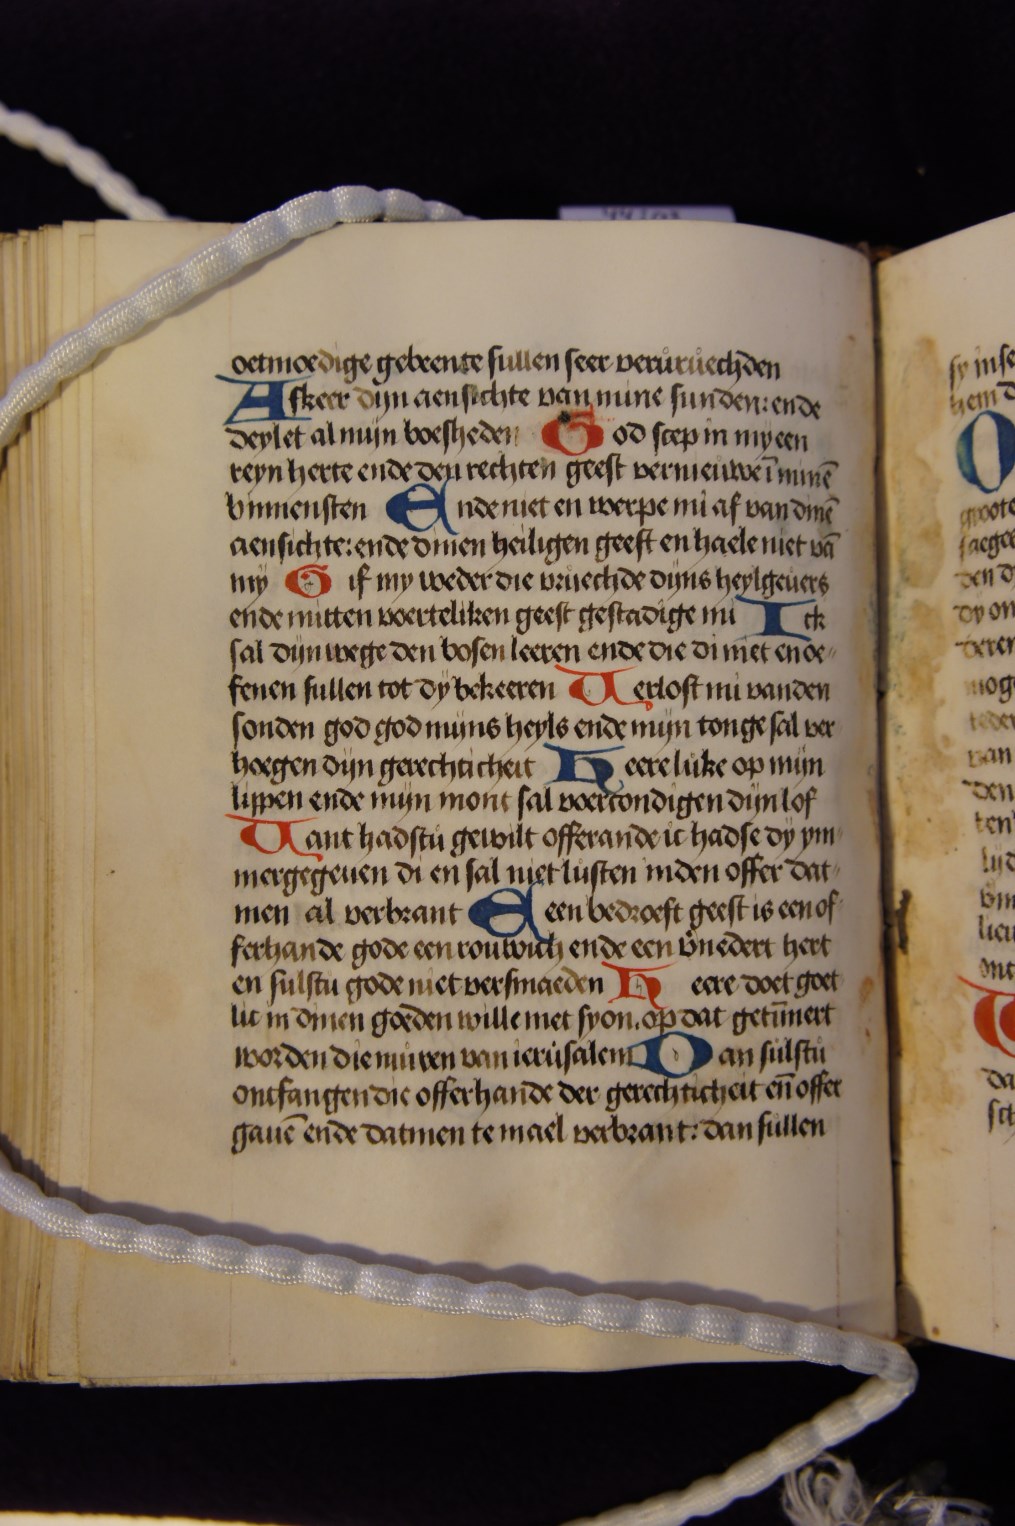 oetmoedige gebeente sullen seer veruruechden
Afkeer dijn aensichte van mine sunden: ende
deylet al mijn boesheden God scep in my een
reyn herte ende den rechten geest vernieuwe ī minē
binnensten Ende niet en werpe mi af van dinē
aensichte: ende dinen heiligen geest en haele niet vā
my Gif my weder die vruechde dijns heylgeuers
ende mitten voerteliken geest gestadige mi Ick
sal dijn wege den bosen leeren ende die di niet en oe
fenen sullen tot dy bekeeren Verlost mi vanden
sonden god god mijns heyls ende mijn tonge sal ver
hoegen dijn gerechticheit Heere luke op mijn
lippen ende mijn mont sal voercondigen dijn lof
Want hadstu gewilt offerande ic hadse dy ym
mer gegeuen di en sal niet lusten inden offer dat
men al verbrant Eeen bedroeft geest is een of
ferhande gode een rouwich ende een vnedert hert
en sulstu gode niet versmaeden Heere doet goet
lic in dinen goeden wille met syon. op dat getīmert
worden die muren van ierusalem Dan sulstu
ontfangen die offerhande der gerechticheit en̄ offer
gauē ende datmen te mael verbrant: dan sullen
sy in se
hem d
O
groote
saegee
den d
dy on
beren
moge
van
den
ten
lijd
bin
lieu
ont
da
sch